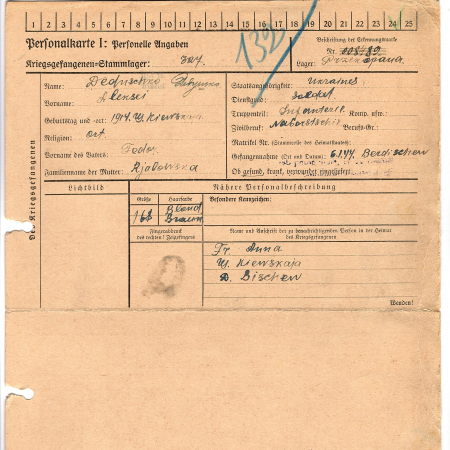 1 2 3 4 5 6 7 8 9 10 11 12 13 14 15 16 17 18 19 20 21 22 23 24 25
Personalkarte I: Personelle Angaben
132
Beschriftung der Erkennungsmarke
Nr.
Kriegsgefangenen-Stammlager:
Lager:
Des Kriegsgefangenen
Name: Deduschko
Vorname: Alexei
Geburtstag und -ort: 1914 Kiewskaja
Religion: ort.
Vorname des Vaters: Fedor
Familienname der Mutter: Rjabowska
Staatsangehörigkeit: Ukraines.
Dienstgrad: Soldat
Truppenteil: Komp. usw.:
Zivilberuf: Berufs-Gr.:
Matrikel Nr. (Stammrolle des Heimatstaates):
Gefangennahme (Ort und Datum): 6.1.44 Berdischew
Ob gesund, krank, verwundet eingeliefert:
Lichtbild
Nähere Personalbeschreibung
Größe Haarfarbe Besondere Kennzeichen:
168 Blond
Braun
Fingerabdruck
des rechten! Zeigefingers
Name und Anschrift der zu benachrichtigenden Person in der Heimat
des Kriegsgefangenen
Fr. Anna
Kiewskaja
Wenden!